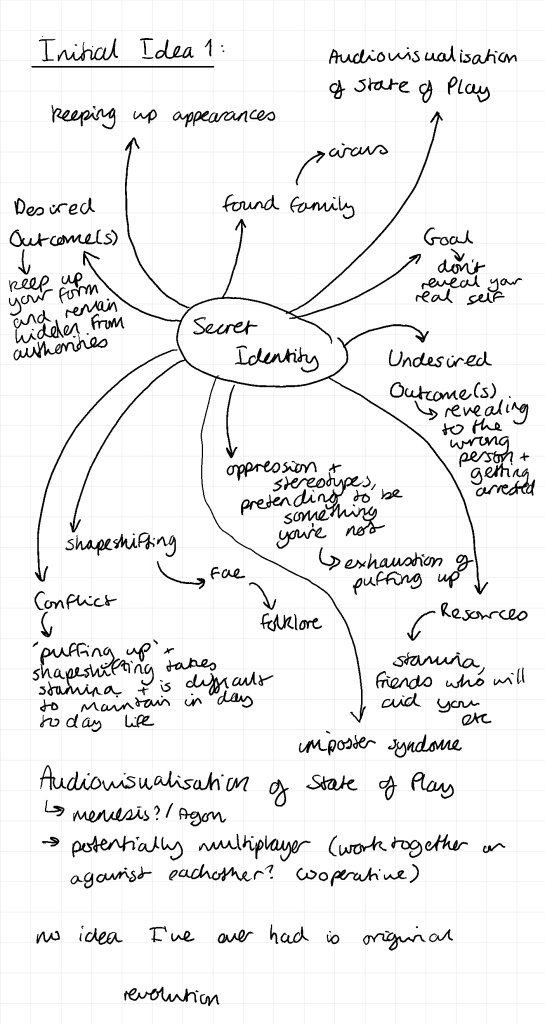 Initial Idea 1:
Audiovisualisation
of State of Play
keeping up appearances
circus
found family
Desired
Outcome(s)
keep up
your form
and remain
hidden from
authorities
Goal
don't
reveal your
real self
Secret
Identity
Undesired
Outcome(s)
revealing
to the
wrong
person +
getting
arrested
oppression +
stereotypes,
pretending to be
something
you're not
exhaustion of
puffing up
shapeshifting
fae
folklore
Conflict
'puffing up' +
shapeshifting takes
stamina + is difficult
to maintain in day
to day life
Resources
stamina,
friends who will
aid you
etc
imposter syndrome
Audiovisualisation of State of Play
memesis?/Agon
potentially multiplayer (work together or
against eachother? Cooperative)
no idea I've ever had is original
revolution